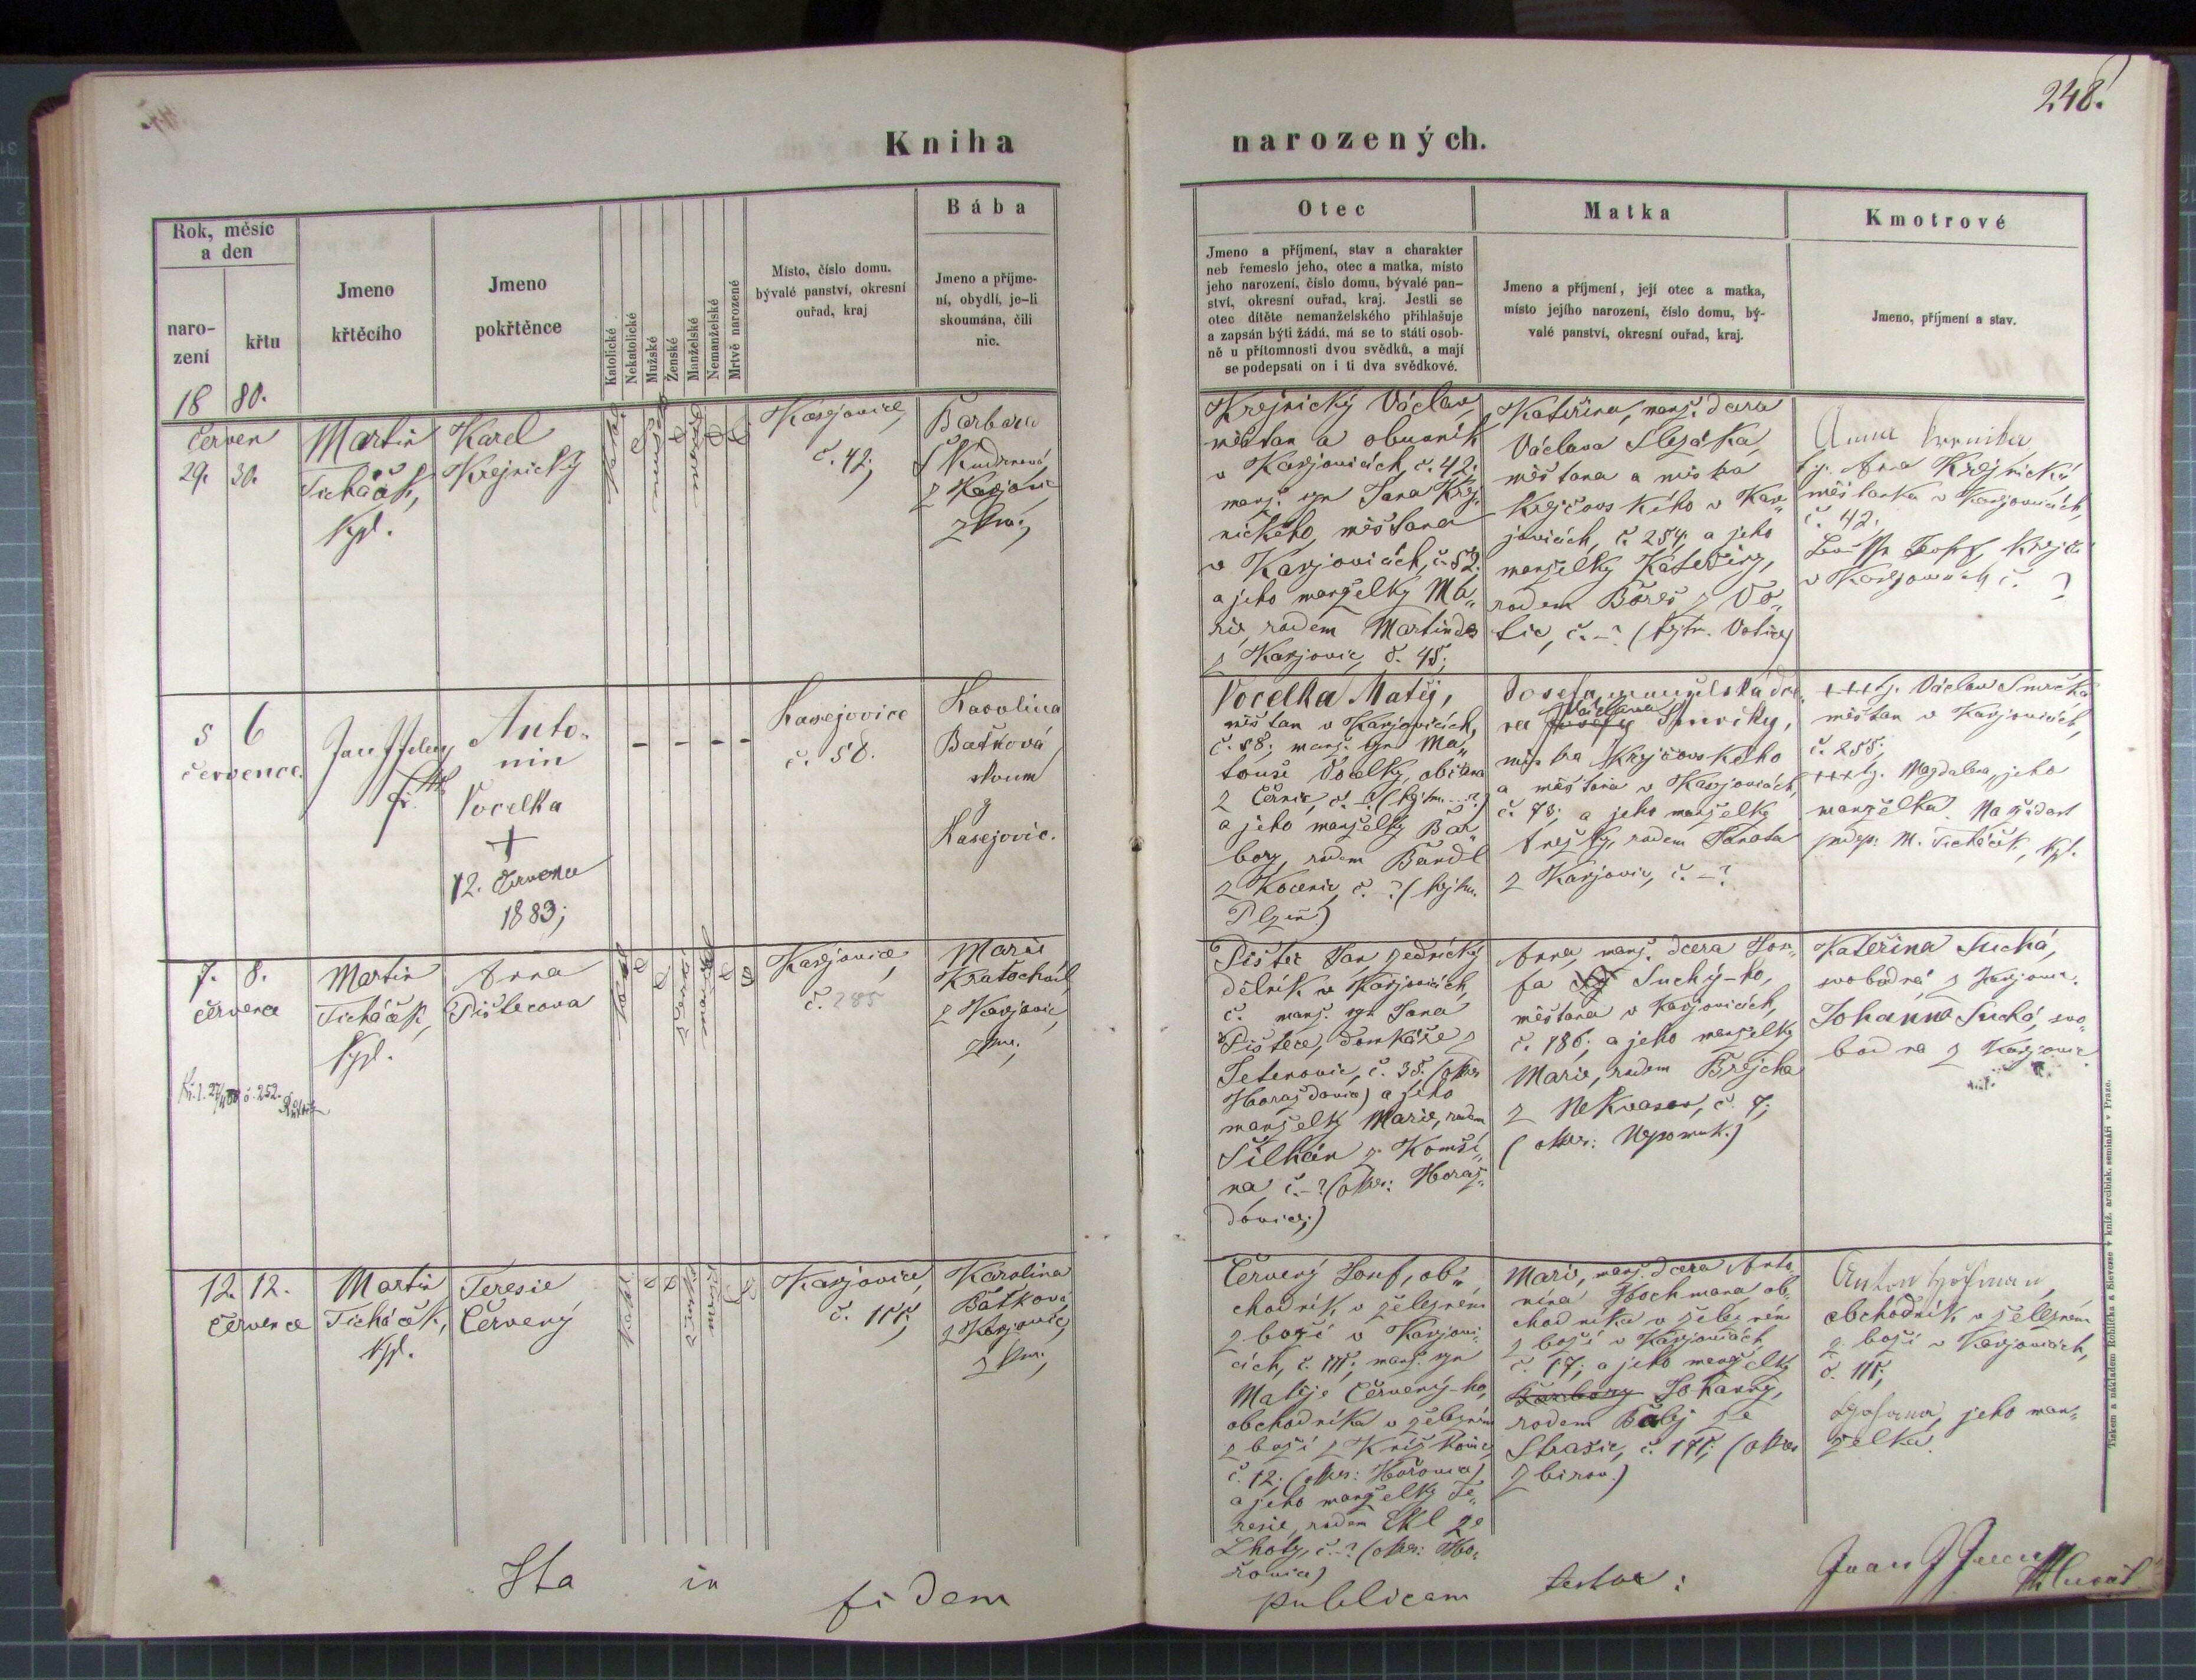 248.
Kniha narozených.
Rok, měsíc
a den
naro-
zení
křtu
18 80.
Jmeno
křtěcího
Jmeno
pokřtěnce
Katolické
Nekatolické
Mužské
Ženské
Manželské
Nemanželské
Mrtvě narozené
Místo, číslo domu,
bývalé panství, okresní
ouřad, kraj
Bába
Jmeno a příjme-
ní, obydlí, je-li
skoumána, čili
nic.
Otec
Jmeno a příjmení, stav a charakter
neb řemeslo jeho, otec a matka, místo
jeho narození, číslo domu, bývalé pan-
ství, okresní ouřad, kraj. Jestli se
otec dítěte nemanželského přihlašuje
a zapsán býti žádá, má se to státi osob-
ně u přítomnosti dvou svědků, a mají
se podepsati on i ti dva svědkové.
Matka
Jmeno a příjmení, její otec a matka,
místo jejího narození, číslo domu, bý-
valé panství, okresní ouřad, kraj.
Kmotrové
Jmeno, příjmení a stav.
Červen
29. 30.
Martin
Ticháček,
kpl.
Karel
Krejnický
Kasejovice,
č. 42;
Barbara
Kudrnová
z Kasejovic
zkou.;
Krejnický Václav,
měštan a obuvník
v Kasejovicích, č. 42;
manž. syn Jana Krej„
nického, měštana
v Kasejovicích, č. 52;
a jeho manželky Ma„
rie, rodem Martinda
z Kasejovic, č. 45;
Kateřina, manž. dcera
Václava Slezáka,
měštana a mistra
krejčovského v Kase„
jovicích, č. 254; a jeho
manželky Kateřiny,
rodem Böreš z Vo„
tic, č. –? (hejtm. Votice)
tj. Anna Krejnická,
měštanka v Kasejovicích,
č. 42.
v Kasejovicích č. ?
5 6
července.
Anto-
nín
Vocelka
+
12. Července
1883;
- - - -
Kasejovice
č. 58.
Karolina
Baťková
skoum
Kasejovic.
Vocelka Matěj,
měštan v Kasejovicích,
č. 58; manž. syn Ma„
touše Vocelky, občana
z Černic, č. –? (hejtm. –?)
a jeho manželky Bar„
bory, rodem Bandl
z Kocenic, č. –? (hejtm.
Plzeň)
Josefa, manželská dce„
ra Václava Smrčky,
mistra krejčovského
a měštana v Kasejovicích,
č. 73; a jeho manželky
Anežky, rodem Hanata
z Kasejovic, č. –?
+++ tj. Václav Smrčka
měštan v Kasejovicích,
č. 255;
+++ tj. Magdalena, jeho
manželka. Na žádost
podep: M. Ticháček, kpl.
7. 8.
července
Martin
Ticháček,
kpl.
Anna
Pištecova
Kasejovice,
č. 285
Marie
Kratochvíl
z Kasejovic,
zkou.;
Pištec Jan, zednický
dělník v Kasejovicích,
č. manž. syn Jana
Pištece, domkáře z
Tetenovic, č. 35. (okres
Horažďovice) a jeho
manželky Marie, rodem
Šilhán z Komši„
na, č. –? (okres: Horaž„
ďovice;)
Anna, manž. dcera Jose„
fa Suchý-ho,
měštana v Kasejovicích,
č. 186; a jeho manželky
Marie, rodem Brejcha
z Nekvasov, č. 7;
(okres: Nepomuk.)
Kateřina Suchá,
svobodná z Kasejovic.
Johanna Suchá, svo„
bodná z Kasejovic.
12. 12.
Července
Martin
Ticháček,
kpl.
Teresie
Červený
Kasejovice,
č. 111;
Karolina
Baťková,
z Kasejovic,
zkou.;
Červený Josef, ob„
chodník v železném
zboží v Kasejovi„
cích, č. 111; manž. syn
Matěje Červený-ho,
obchodníka v železném
zboží z Kríškovic
č. 12; (okres: Hořovice)
a jeho manželky Te„
resie, rodem Ekl ze
Lhoty, č. –? (okres: Ho„
řovice)
Marie, manž. dcera Anto„
nína Hochmana, ob„
chodníka v železném
zboží v Kasejovicích,
č. 17; a jeho manželky
Barbory Johanny,
rodem Balej ze
Strašic, č. 171; (okres
Zbirov.)
obchodník v železném
zboží v Kasejovicích,
č. 111;
jeho man„
želka.
Ita in fidem publicam testor:
Tiskem a nákladem Rohlíčka a Sieverse v kníž. arcibisk. semináři v Praze.